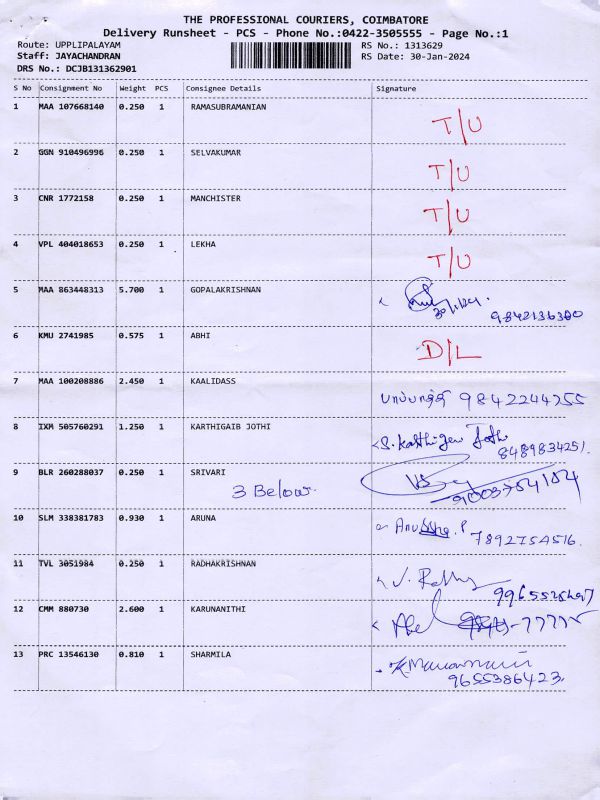 THE PROFESSIONAL COURIERS, COIMBATORE
Delivery Runsheet - PCS - Phone No.:0422-3505555 - Page No.:1
Route: UPPLIPALAYAM
RS No.: 1313629
Staff: JAYACHANDRAN
RS Date: 30-Jan-2024
DRS No.: DCJB131362901
S No Consignment No Weight PCS Consignee Details Signature
1 MAA 107668140 0.250 1 RAMASUBRAMANIAN
T/U
2 GGN 910496996 0.250 1 SELVAKUMAR
T/U
3 CNR 1772158 0.250 1 MANCHISTER
T/U
4 VPL 404018653 0.250 1 LEKHA
T/U
5 MAA 863448313 5.700 1 GOPALAKRISHNAN
9842136300
6 KMU 2741985 0.575 1 ABHI
D/L
7 MAA 100208886 2.450 1 KAALIDASS
9842244255
8 IXM 505760291 1.250 1 KARTHIGAIB JOTHI
S. Karthigai Jothi
8489834251.
9 BLR 260288037 0.250 1 SRIVARI
3 Below.
9003754184
10 SLM 338381783 0.930 1 ARUNA
7892754516.
11 TVL 3051984 0.250 1 RADHAKRISHNAN
12 CMM 880730 2.600 1 KARUNANITHI
13 PRC 13546130 0.810 1 SHARMILA
9655386423.